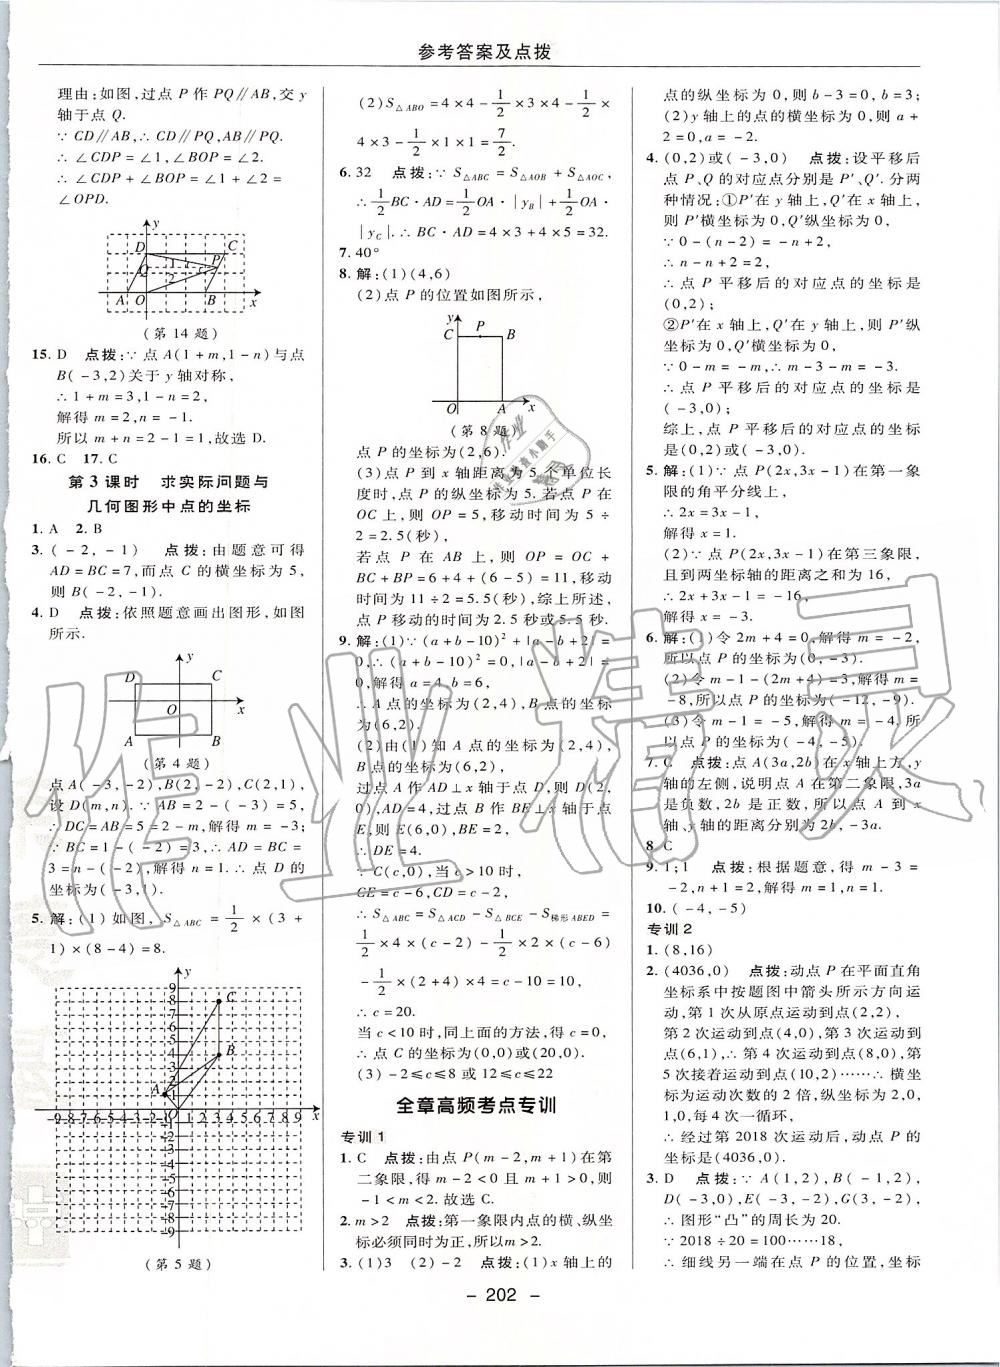 参考答案及点拨
理由:如图,过点 P 作 PQ∥AB,交 y
轴于点 Q.
∵ CD∥AB,∴ CD∥PQ,AB∥PQ.
∴ ∠CDP=∠1,∠BOP=∠2.
∴ ∠CDP+∠BOP=∠1+∠2=
∠OPD.
y
D C
Q 1 P
2
A O B x
(第 14 题)
15. D 点拨:∵ 点 A(1+m,1-n)与点
B(-3,2)关于 y 轴对称,
∴ 1+m=3,1-n=2,
解得 m=2,n=-1.
所以 m+n=2-1=1,故选 D.
16. C 17. C
第 3 课时 求实际问题与
几何图形中点的坐标
1. A 2. B
3. (-2,-1) 点拨:由题意可得
AD=BC=7,而点 C 的横坐标为 5,
则 B(-2,-1).
4. D 点拨:依照题意画出图形,如图
所示.
y
D C
O x
A B
(第 4 题)
点 A(-3,-2),B(2,-2),C(2,1),
设 D(m,n).∵ AB=2-(-3)=5,
∴ DC=AB=5=2-m,解得 m=-3;
∵ BC=1-(-2)=3,∴ AD=BC=
3=n-(-2),解得 n=1.∴ 点 D 的
坐标为(-3,1).
5. 解:(1)如图,S△ABC=1/2×(3+
1)×(8-4)=8.
y
9
8 C
7
6
5
4 B
3
2
A 1
-9-8-7-6-5-4-3-2-1 O 1 2 3 4 5 6 7 8 9 x
-1
-2
-3
-4
-5
-6
-7
-8
-9
(第 5 题)
(2)S△ABO=4×4-1/2×3×4-1/2×
4×3-1/2×1×1=7/2.
6. 32 点拨:∵ S△ABC=S△AOB+S△AOC,
∴ 1/2BC·AD=1/2OA·|yB|+1/2OA·
|yC|.∴ BC·AD=4×3+4×5=32.
7. 40°
8. 解:(1)(4,6)
(2)点 P 的位置如图所示,
y
C P B
O A x
(第 8 题)
点 P 的坐标为(2,6).
(3)点 P 到 x 轴距离为 5 个单位长
度时,点 P 的纵坐标为 5.若点 P 在
OC 上,则 OP=5,移动时间为 5÷
2=2.5(秒),
若点 P 在 AB 上,则 OP=OC+
BC+BP=6+4+(6-5)=11,移动
时间为 11÷2=5.5(秒),综上所述,
点 P 移动的时间为 2.5 秒或 5.5 秒.
9. 解:(1)∵ (a+b-10)²+|a-b+2|=
0,∴ (a+b-10)²=0,|a-b+2|=
0,解得 a=4,b=6,
∴ A 点的坐标为(2,4),B 点的坐标
为(6,2).
(2)由(1)知 A 点的坐标为(2,4),
B 点的坐标为(6,2),
过点 A 作 AD⊥x 轴于点 D,则 D(2,
0),AD=4,过点 B 作 BE⊥x 轴于点
E,则 E(6,0),BE=2.
∴ DE=4.
∵ C(c,0),当 c>10 时,
CE=c-6,CD=c-2,
∴ S△ABC=S△ACD-S△BCE-S梯形ABED=
4×(c-2)/2-2×(c-6)/2-(2+4)×4/2=10,
∴ c=20.
当 c<10 时,同上面的方法,得 c=0,
∴ 点 C 的坐标为(0,0)或(20,0).
(3)-2≤c≤8 或 12≤c≤22
全章高频考点专训
专训 1
1. C 点拨:由点 P(m-2,m+1)在第
二象限,得 m-2<0,m+1>0,则
-1<m<2.故选 C.
2. m>2 点拨:第一象限内点的横、纵坐
标必须同时为正,所以 m>2.
3. (1)3 (2)-2 点拨:(1)x 轴上的
点的纵坐标为 0,则 b-3=0,b=3;
(2)y 轴上的点的横坐标为 0,则 a+
2=0,a=-2.
4. (0,2)或(-3,0) 点拨:设平移后
点 P、Q 的对应点分别是 P′、Q′.分两
种情况:①P′在 y 轴上,Q′在 x 轴上,
则 P′横坐标为 0,Q′纵坐标为 0,
∵ 0-(n-2)=-n+2,
∴ n-n+2=2,
∴ 点 P 平移后的对应点的坐标是
(0,2);
②P′在 x 轴上,Q′在 y 轴上,则 P′纵
坐标为 0,Q′横坐标为 0,
∵ 0-m=-m,∴ m-3-m=-3.
∴ 点 P 平移后的对应点的坐标是
(-3,0);
综上,点 P 平移后的对应点的坐标是
(0,2)或(-3,0).
5. 解:(1)∵ 点 P(2x,3x-1)在第一象
限的角平分线上,
∴ 2x=3x-1,
解得 x=1.
(2)∵ 点 P(2x,3x-1)在第三象限,
且到两坐标轴的距离之和为 16,
∴ -2x-(3x-1)=16,
解得 x=-3.
6. 解:(1)令 2m+4=0,解得 m=-2,
所以点 P 的坐标为(0,-3).
(2)令 m-1-(2m+4)=3,解得 m=
-8,所以点 P 的坐标为(-12,-9).
(3)令 m-1=-5,解得 m=-4.所
以点 P 的坐标为(-4,-5).
7. C 点拨:点 A(3a,2b)在 x 轴上方,y
轴的左侧,说明点 A 在第二象限,3a
是负数,2b 是正数,所以点 A 到 x
轴、y 轴的距离分别为 2b、-3a.
8. C
9. 1;1 点拨:根据题意,得 m-3=
-2,n+1=2,解得 m=1,n=1.
10. (-4,-5)
专训 2
1. (8,16)
2. (4036,0) 点拨:动点 P 在平面直角
坐标系中按题图中箭头所示方向运
动,第 1 次从原点运动到点(2,2),
第 2 次运动到点(4,0),第 3 次运动
到点(6,1),∴ 第 4 次运动到点(8,0),第
5 次接着运动到点(10,2)……∴ 横坐
标为运动次数的 2 倍,纵坐标为 2,
0,1,0,每 4 次一循环,
∴ 经过第 2018 次运动后,动点 P 的
坐标是(4036,0).
3. D 点拨:∵ A(1,2),B(-1,2),
D(-3,0),E(-3,-2),G(3,-2),
∴ 图形“凸”的周长为 20.
∵ 2018÷20=100……18,
∴ 细线另一端在点 P 的位置,坐标
- 202 -
作业精灵